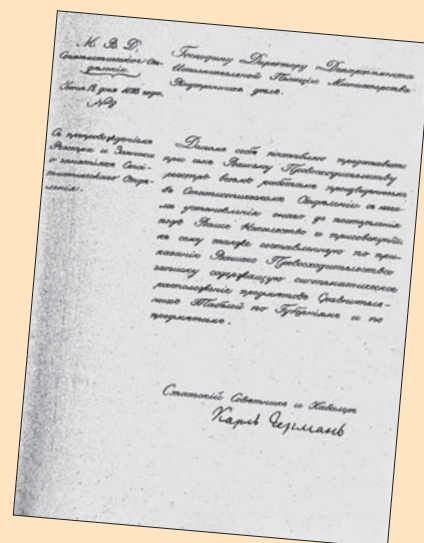 М. В. Д.
Статистическое От-
дѣленіе.
Іюня 13 дня 18 года.
№
Съ препровожденіемъ
Реестра и Записки
о занятіяхъ Стати-
стическаго Отдѣ-
ленія.
Господину Директору Департамента
Исполнительной Полиціи Министерства
Внутреннихъ дѣлъ.
Долгомъ себѣ поставляю представить
при семъ Вашему Превосходительству
реестръ всѣмъ работамъ произведеннымъ
въ Статистическомъ Отдѣленіи съ нача-
ла установленія онаго до поступленія
подъ Ваше Начальство и присовокупить
къ сему также составленную по при-
казанію Вашего Превосходительства
записку содержащую систематическое
расположеніе предметовъ Сравнитель-
ныхъ Таблицъ по Губерніямъ и по
предметамъ.
Статскій Совѣтникъ и Кавалеръ
Карлъ Германъ